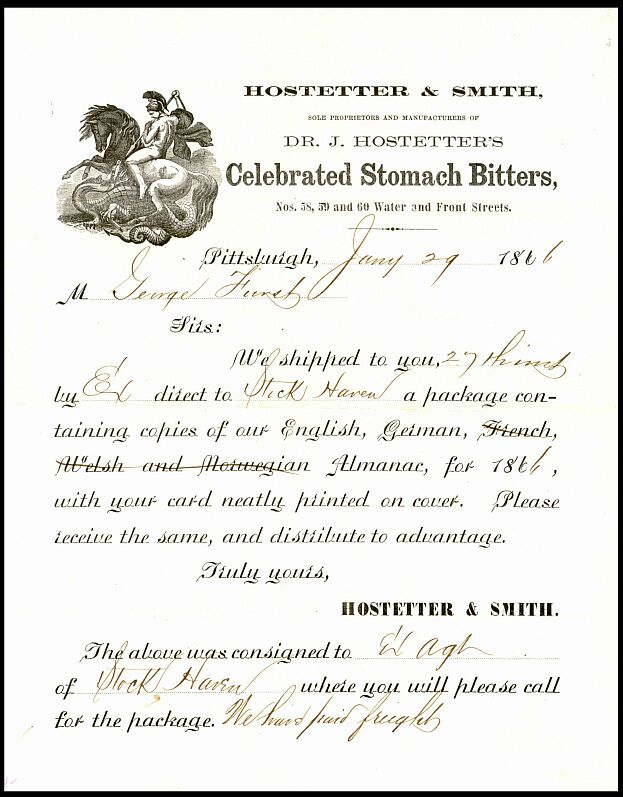 HOSTETTER & SMITH,
SOLE PROPRIETORS AND MANUFACTURERS OF
DR. J. HOSTETTER'S
Celebrated Stomach Bitters,
Nos. 58, 59 and 60 Water and Front Streets.
Pittsburgh, Jany 29 1866
M George Furst
Sirs:
We shipped to you, 27 th inst
by Ex direct to Lock Haven a package con-
taining copies of our English, German, French,
Welsh and Norwegian Almanac, for 1866,
with your card neatly printed on cover. Please
receive the same, and distribute to advantage.
Truly yours,
HOSTETTER & SMITH.
The above was consigned to Ex Agt
of Lock Haven where you will please call
for the package. We have paid freight